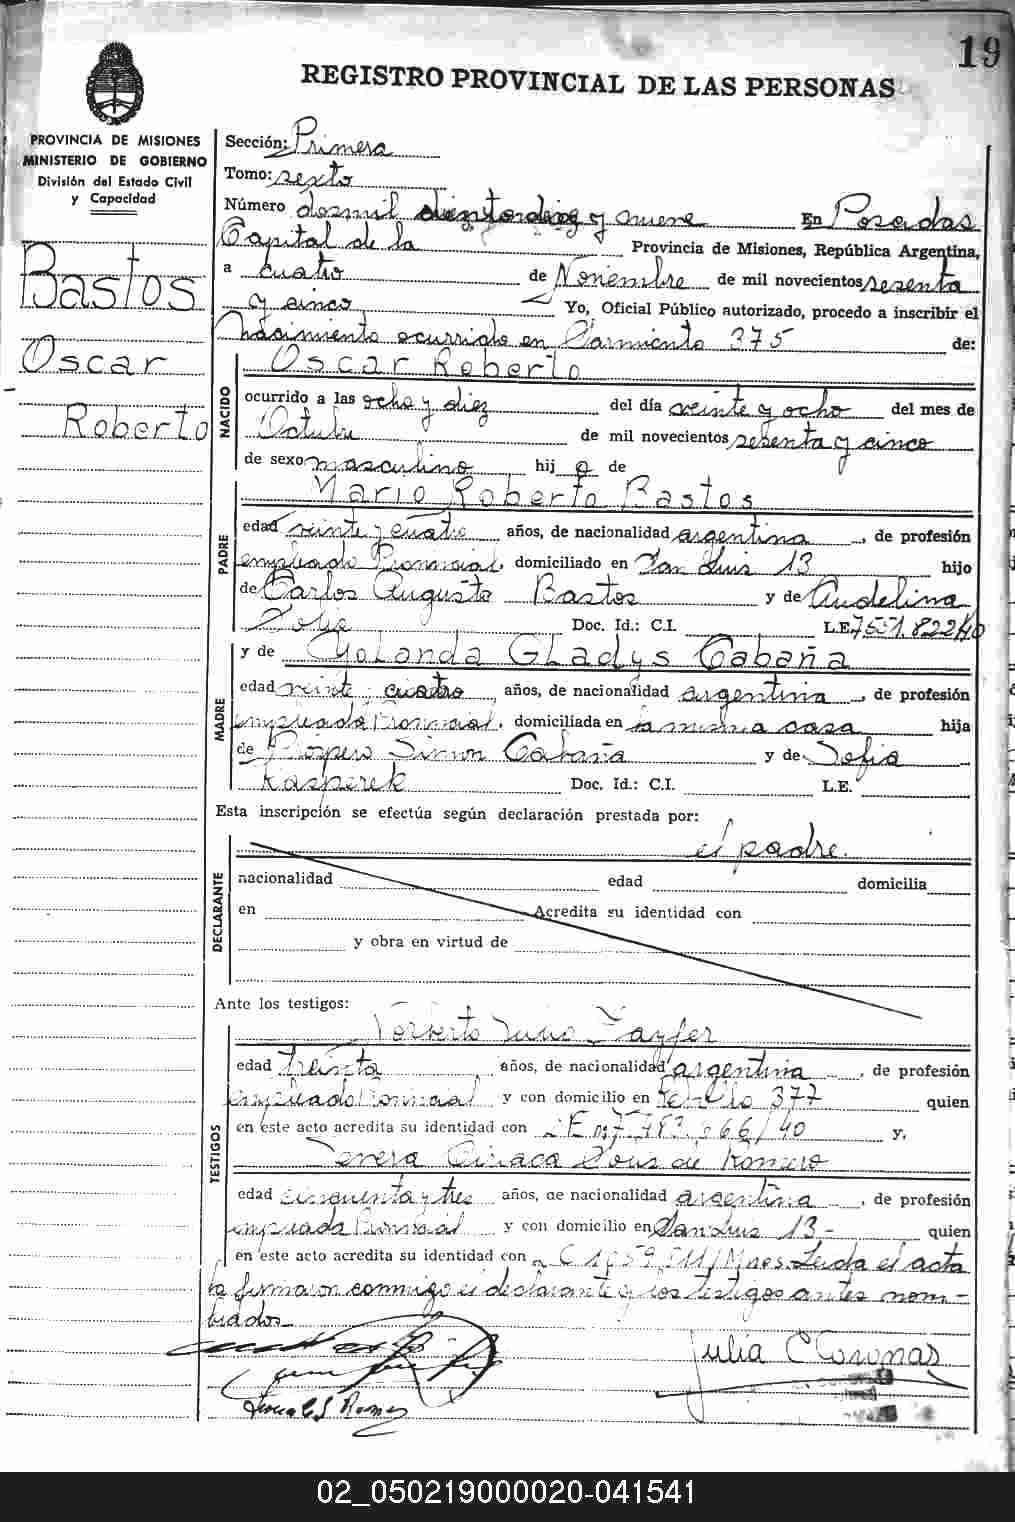 19
REGISTRO PROVINCIAL DE LAS PERSONAS
PROVINCIA DE MISIONES
MINISTERIO DE GOBIERNO
División del Estado Civil
y Capacidad
Bastos
Oscar
Roberto
Sección: Primera
Tomo: sexto
Número dosmil y nueve En Posadas
Capital de la Provincia de Misiones, República Argentina,
a cuatro de Noviembre de mil novecientos sesenta
y cinco Yo, Oficial Público autorizado, procedo a inscribir el
Nacimiento ocurrido en Sarmiento 375 de:
NACIDO
Oscar Roberto
ocurrido a las ocho y diez del día veinte y ocho del mes de
Octubre de mil novecientos sesenta y cinco
de sexo masculino hij o de
PADRE
Mario Roberto Bastos
edad veinte y cuatro años, de nacionalidad argentina, de profesión
empleado Provincial, domiciliado en San Luis 13 hijo
de Carlos Augusto Bastos y de Audelina
Doc. Id.: C.I. L.E. 7551.822/40
MADRE
y de Yolanda Gladys Cabaña
edad veinte y cuatro años, de nacionalidad argentina, de profesión
empleada Provincial, domiciliada en la misma casa hija
de Próspero Simón Cabaña y de Sofia
Kasperek Doc. Id.: C.I. L.E.
Esta inscripción se efectúa según declaración prestada por:
DECLARANTE
el padre.
nacionalidad edad domicilia
en Acredita su identidad con
y obra en virtud de
Ante los testigos:
TESTIGOS
Norberto Julio
edad treinta años, de nacionalidad argentina, de profesión
empleado Provincial y con domicilio en 377 quien
en este acto acredita su identidad con L E nº 7.783.066/40 y,
Ciriaca de Romero
edad cincuenta y tres años, de nacionalidad argentina, de profesión
empleada Provincial y con domicilio en San Luis 13- quien
en este acto acredita su identidad con Mnes. Leida el acta
la firmaron conmigo el declarante y los testigos antes nom-
brados.
Julia C Coronas
02_050219000020-041541